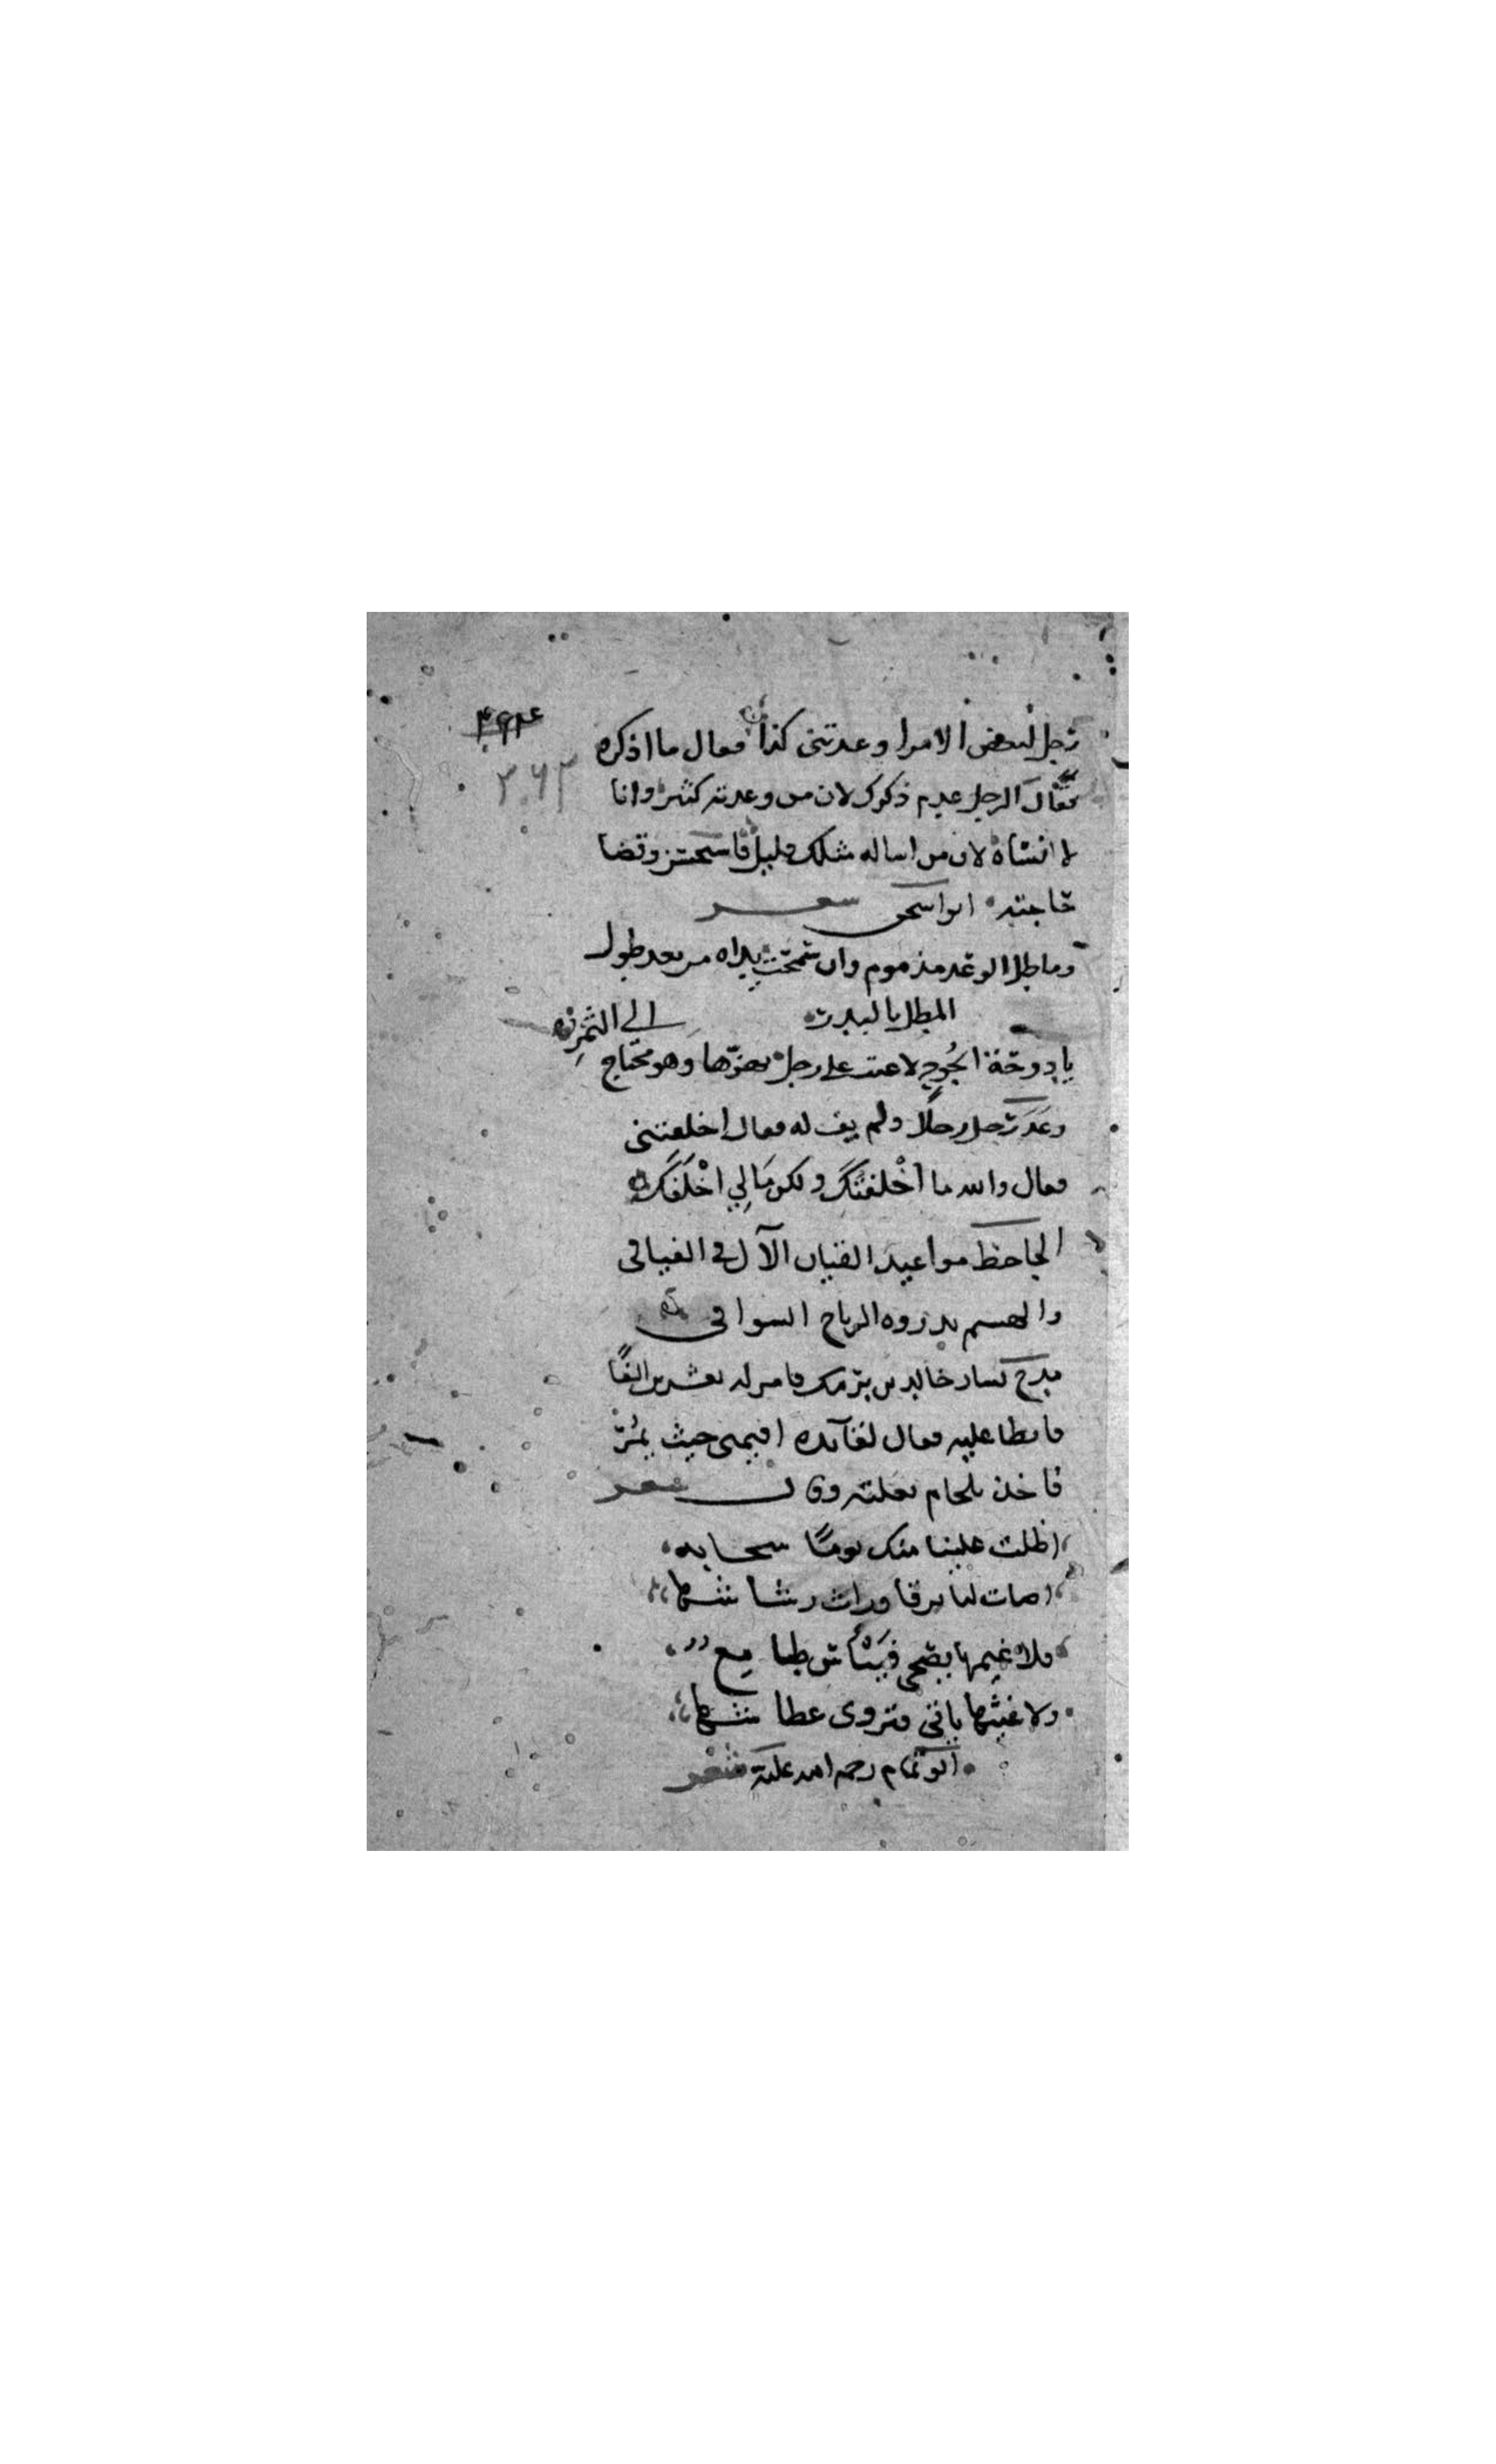 رجل لبعض الامرا وعدتني كذا فقال ما اذكره
فقال الرجل عدم ذكرك لان من وعدته كثير وانا
لا انساه لان من اساله مثلك قليل فاستحسنه وقضا
حاجته ابو اسحق شعر
وماطل الوعد مذموم وان سمحت يداه من بعد طول
المطل بالبدر
يا دوحة الجود لا عتب على رجل يهزها وهو محتاج
الى الثمر
وعد رجل رجلا ولم يف له فقال اخلفتني
فقال والله ما اخلفتك ولكن مالي اخلفك
الجاحظ مواعيد القيان الآل في الفيافي
والهشيم تذروه الرياح السوافي
مدح بشار خالد بن برمك فامر له بعشرين الفا
فابطا عليه فقال لقائده اقمني حيث يمر
فاخذ بلجام بغلته وقال شعر
اظلت علينا منك يوما سحابه
اضات لنا برقا وراث رشاشها
فلا غيمها يضحي فييأس طامع
ولا غيثها ياتي فتروى عطاشها
ابو تمام رحمه الله عليه شعر
٣٦٣